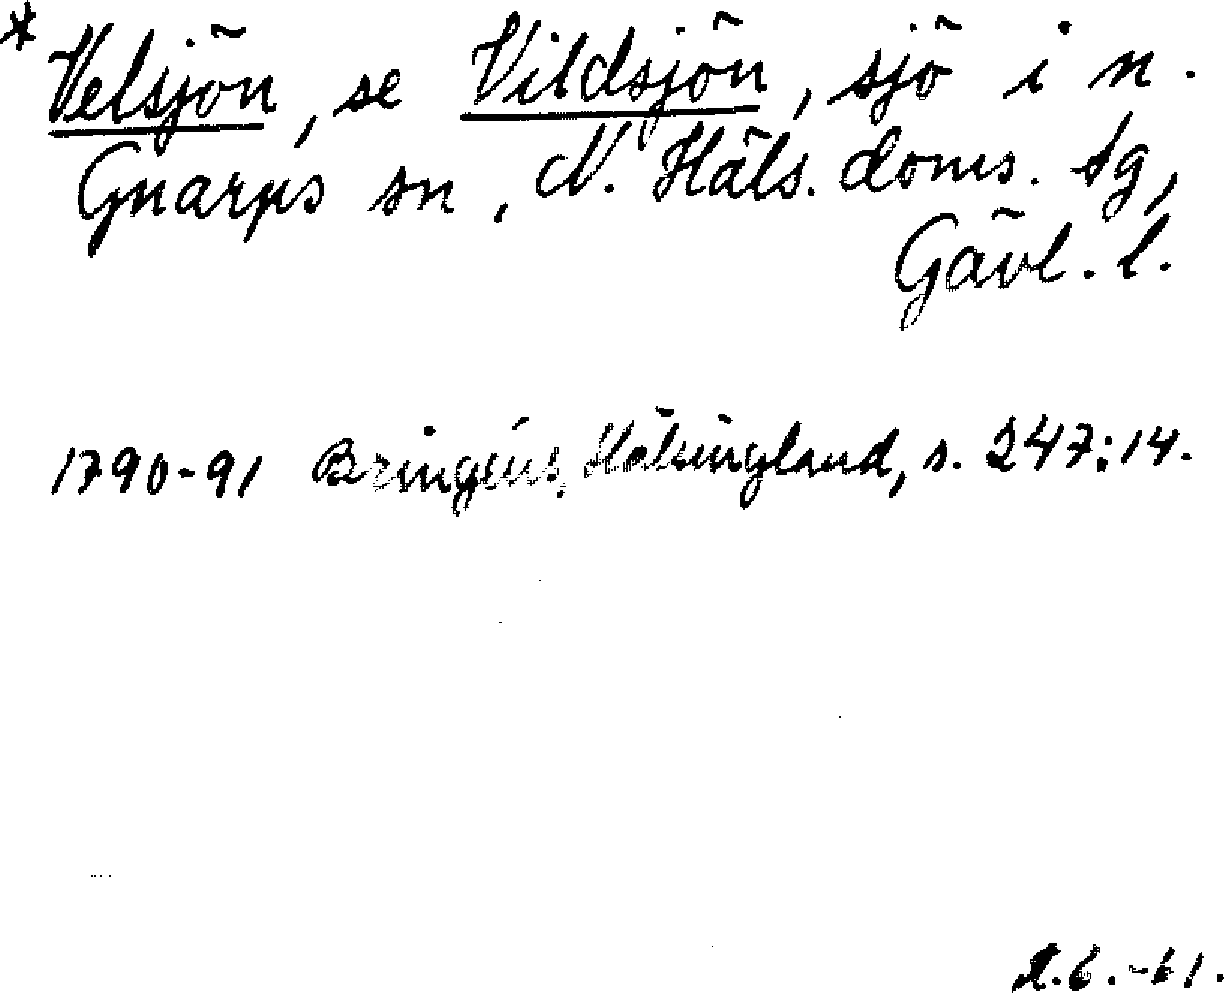 * Velsjön, se Vildsjön, sjö i n.
Gnarps sn, N. Häls. doms. tg,
Gävl. l.
1790-91 Bringéus, Hälsingland, s. 247:14.